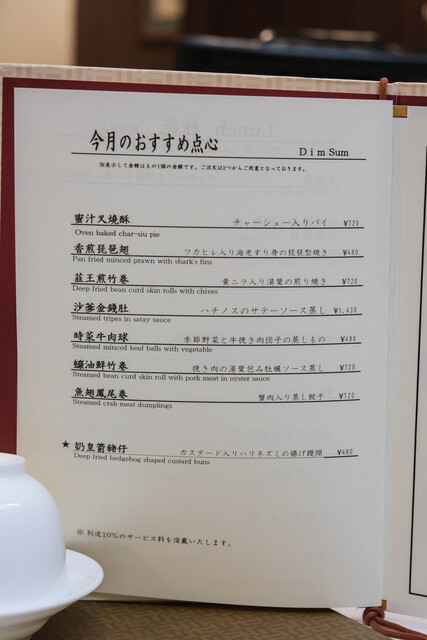 今月のおすすめ点心 Dim Sum
※表示して金額はもの1個の金額です。ご注文は2つからご用意となっております。
蜜汁叉燒酥 チャーシュー入りパイ ¥720
Oven baked char-siu pie
香煎琵琶翅 フカヒレ入り海老すり身の琵琶型焼き ¥480
Pan fried minced prawn with shark's fins
韮王煎竹巻 黄ニラ入り湯葉の煎り焼き ¥720
Deep fried bean curd skin rolls with chives
沙爹金錢肚 ハチノスのサテーソース蒸し ¥1,430
Steamed tripes in satay sauce
時菜牛肉球 季節野菜と牛挽き肉団子の蒸しもの ¥480
Steamed minced beef balls with vegetable
蠔油鮮竹巻 挽き肉の湯葉包み牡蠣ソース蒸し ¥720
Steamed bean curd skin roll with pork meat in oyster sauce
魚翅鳳尾巻 蟹肉入り蒸し餃子 ¥720
Steamed crab meat dumplings
★ 奶皇箭豬仔 カスタード入りハリネズミの揚げ饅頭 ¥480
Deep fried hedgehog shaped custard buns
※ 別途10%のサービス料を頂戴いたします。